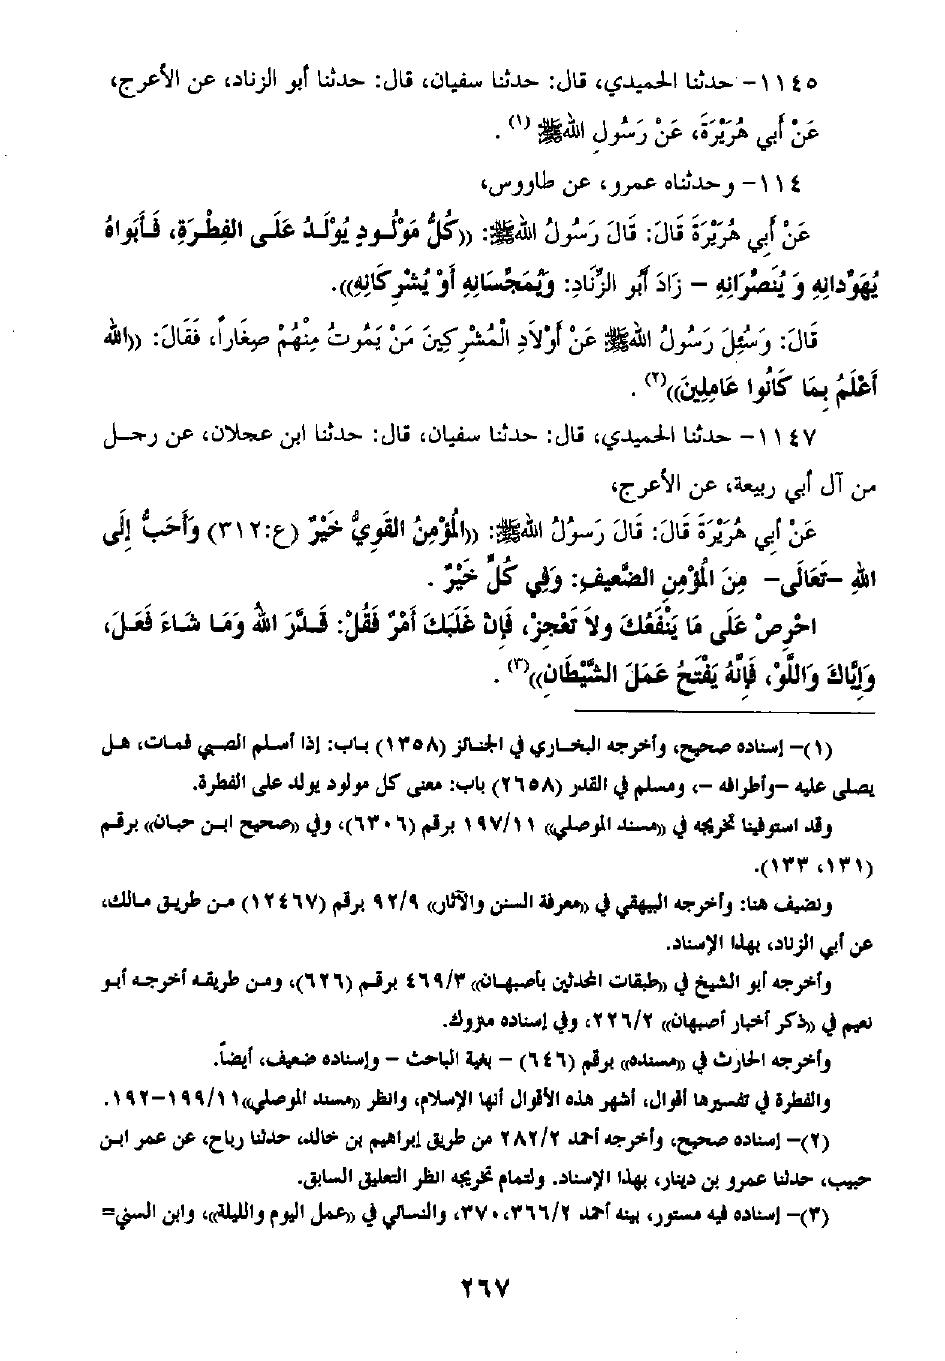 ١١٤٥- حدثنا الحميدي، قال: حدثنا سفيان، قال: حدثنا أبو الزناد، عن الأعرج،
عَنْ أَبِي هُرَيْرَةَ، عَنْ رَسُولِ اللهِ ﷺ (١) .
١١٤- وحدثناه عمرو، عن طاووس،
عَنْ أَبِي هُرَيْرَةَ قَالَ: قَالَ رَسُولُ اللهِ ﷺ: ((كُلُّ مَوْلُودٍ يُولَدُ عَلَى الفِطْرَةِ، فَأَبَوَاهُ
يُهَوِّدَانِهِ وَ يُنَصِّرَانِهِ - زَادَ أَبُو الزِّنَادِ: وَيُمَجِّسَانِهِ أَوْ يُشْرِكَانِهِ)).
قَالَ: وَسُئِلَ رَسُولُ اللهِ ﷺ عَنْ أَوْلَادِ الْمُشْرِكِينَ مَنْ يَمُوتُ مِنْهُمْ صِغَاراً، فَقَالَ: ((اللهُ
أَعْلَمُ بِمَا كَانُوا عَامِلِينَ))(٢) .
١١٤٧- حدثنا الحميدي، قال: حدثنا سفيان، قال: حدثنا ابن عجلان، عن رجل
من آل أبي ربيعة، عن الأعرج،
عَنْ أبِي هُرَيْرَةَ قَالَ: قَالَ رَسُولُ اللهِ ﷺ: ((الْمُؤْمِنُ القَوِيُّ خَيْرٌ (ع:٣١٢) وَأَحَبُّ إِلَى
اللهِ -تَعَالَى- مِنَ الْمُؤْمِنِ الضَّعِيفِ: وَفِي كُلٍّ خَيْرٌ .
احْرِصْ عَلَى مَا يَنْفَعُكَ ولاَ تَعْجِزْ، فَإِنْ غَلَبَكَ أَمْرٌ فَقُلْ: قَدَّرَ اللهُ وَمَا شَاءَ فَعَلَ،
وَإِيَّاكَ وَاللَّوْ، فَإِنَّهُ يَفْتَحُ عَمَلَ الشَّيْطَانِ))(٣) .
(١)- إسناده صحيح، وأخرجه البخاري في الجنائز (١٣٥٨) باب: إذا أسلم الصبي فمات، هل
يصلى عليه -وأطرافه -، ومسلم في القدر (٢٦٥٨) باب: معنى كل مولود يولد على الفطرة.
وقد استوفينا تخريجه في ((مسند الموصلي)) ١٩٧/١١ برقم (٦٣٠٦)، وفي ((صحيح ابن حبان)) برقم
(١٣١، ١٣٣).
ونضيف هنا: وأخرجه البيهقي في ((معرفة السنن والآثار)) ٩٢/٩ برقم (١٢٤٦٧) من طريق مالك،
عن أبي الزناد، بهذا الإسناد.
وأخرجه أبو الشيخ في ((طبقات المحدثين بأصبهان)) ٤٦٩/٣ برقم (٦٢٦)، ومن طريقه أخرجه أبو
نعيم في ((ذكر أخبار أصبهان)) ٢٢٦/٢، وفي إسناده متروك.
وأخرجه الحارث في ((مسنده)) برقم (٦٤٦) - بغية الباحث - وإسناده ضعيف، أيضاً.
والفطرة في تفسيرها أقوال، أشهر هذه الأقوال أنها الإسلام، وانظر ((مسند الموصلي))١٩٩/١١-١٩٢.
(٢)- إسناده صحيح، وأخرجه أحمد ٢٨٢/٢ من طريق إبراهيم بن خالد، حدثنا رباح، عن عمر ابن
حبيب، حدثنا عمرو بن دينار، بهذا الإسناد. ولتمام تخريجه انظر التعليق السابق.
(٣)- إسناده فيه مستور، بينه أحمد ٣٦٦/٢، ٣٧٠، والنسائي في ((عمل اليوم والليلة))، وابن السني=
٢٦٧